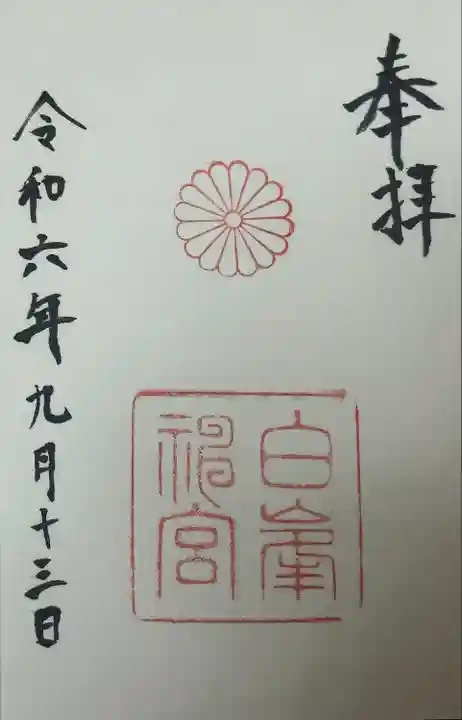 奉拝
白峯
神宮
令和六年九月十三日